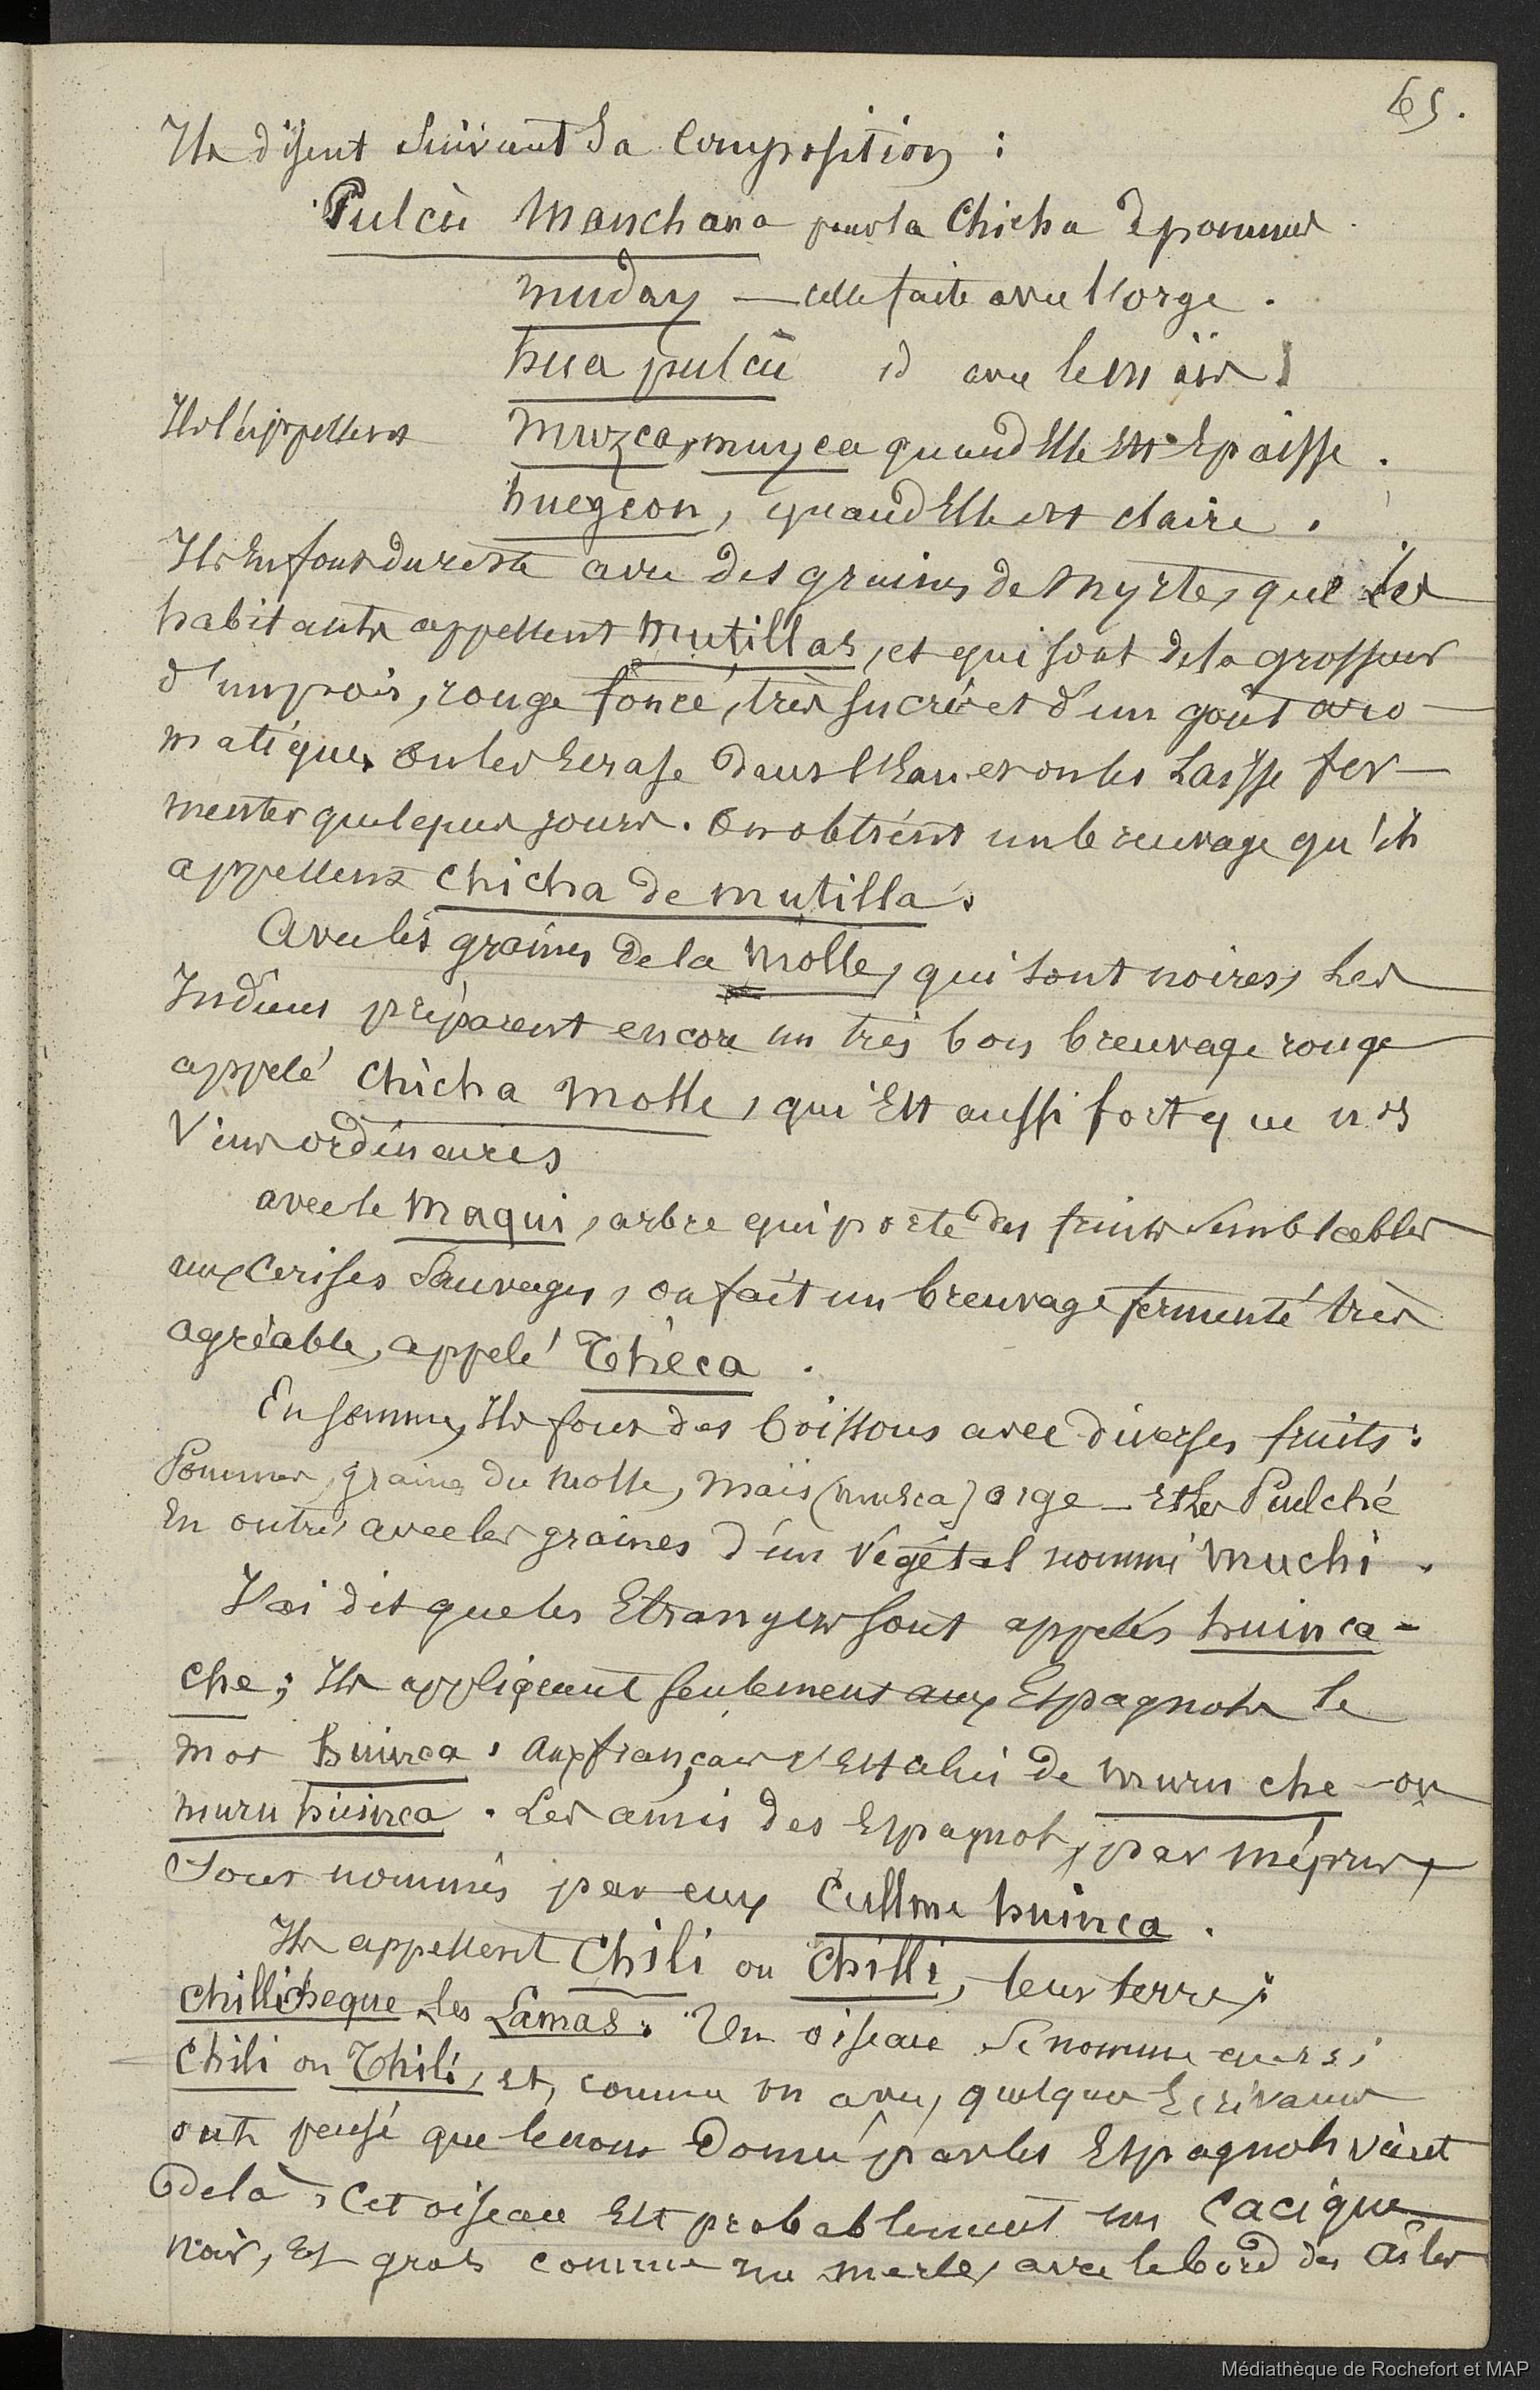 65.
Ils disent suivant sa composition :
Pulcù Manchana pour la Chicha de pommes.
muday — celle faite avec l'orge.
hua pulcu id avec le maïs
Ils l'appellent muzca, muyca quand elle est épaisse.
huegcon, quand elle est claire.
Ils en font du reste avec des graines de Myrte, que les
habitants appellent mutillas, et qui sont de la grosseur
d'un pois, rouge foncé, très sucré et d'un goût aro-
matique. On les Ecrase dans l'Eau et on les Laisse fer-
menter quelques jours. On obtient un breuvage qu'ils
appellent chicha de mutilla.
Avec les graines de la Molle, qui sont noires, Les
Indiens préparent encore un très bon breuvage rouge
appelé Chicha Molle, qui Est aussi fort que nos
Vins ordinaires
avec le Maqui, arbre qui porte des fruits semblables
aux Cerises Sauvages, on fait un breuvage fermenté très
agréable, appelé Thèca.
En somme, Ils font des boissons avec diverses fruits :
Pommes, graines du Molle, Maïs (musca) orge — Et les Pulché
En outre avec les graines d'un Végétal nommé Muchi.
J'ai dit que les Etrangers sont appelés huinca-
che ; Ils appliquent seulement aux Espagnols le
mot huinca. Aux français c'est celui de muru che ou
muru huinca. Les amis des Espagnols, par mépris,
sont nommés par eux Cullme huinca.
Ils appellent Chili ou Chilli, leur terre ;
Chillicheque Les Lamas. Un oiseau se nomme aussi
Chili ou Thili, et, comme on a vu, quelques Ecrivains
ont pensé que le nom donné par les Espagnols vient
de là. Cet oiseau Est probablement un Cacique
noir, Est gros comme un merle, avec le bord des ailes
Médiathèque de Rochefort et MAP